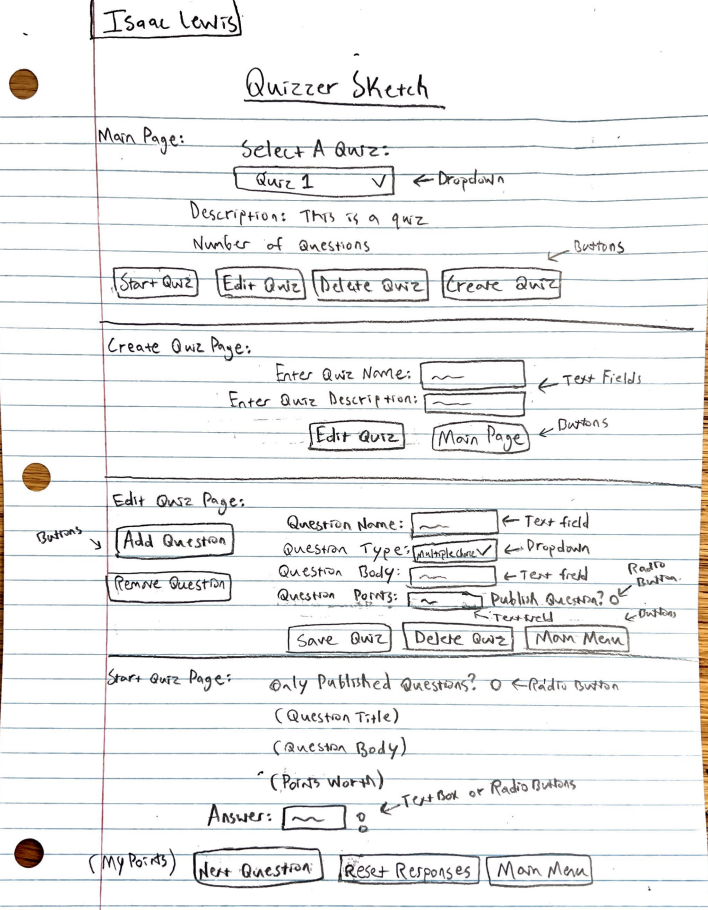 Isaac Lewis
Quizzer Sketch
Main Page:
Select A Quiz:
Quiz 1 ← Dropdown
Description: This is a quiz
Number of Questions
← Buttons
Start Quiz Edit Quiz Delete Quiz Create Quiz
Create Quiz Page:
Enter Quiz Name: ← Text Fields
Enter Quiz Description:
Edit Quiz Main Page ← Buttons
Edit Quiz Page:
Buttons Add Question Question Name: ← Text field
Question Type: Multiple Choice ← Dropdown
Remove Question Question Body: ← Text field Radio Button
Question Points: Publish Question?
← Text field ← Buttons
Save Quiz Delete Quiz Main Menu
Start Quiz Page: Only Published Questions? ← Radio Button
(Question Title)
(Question Body)
(Points Worth)
Answer: ← Text Box or Radio Buttons
(My Points) Next Question Reset Responses Main Menu